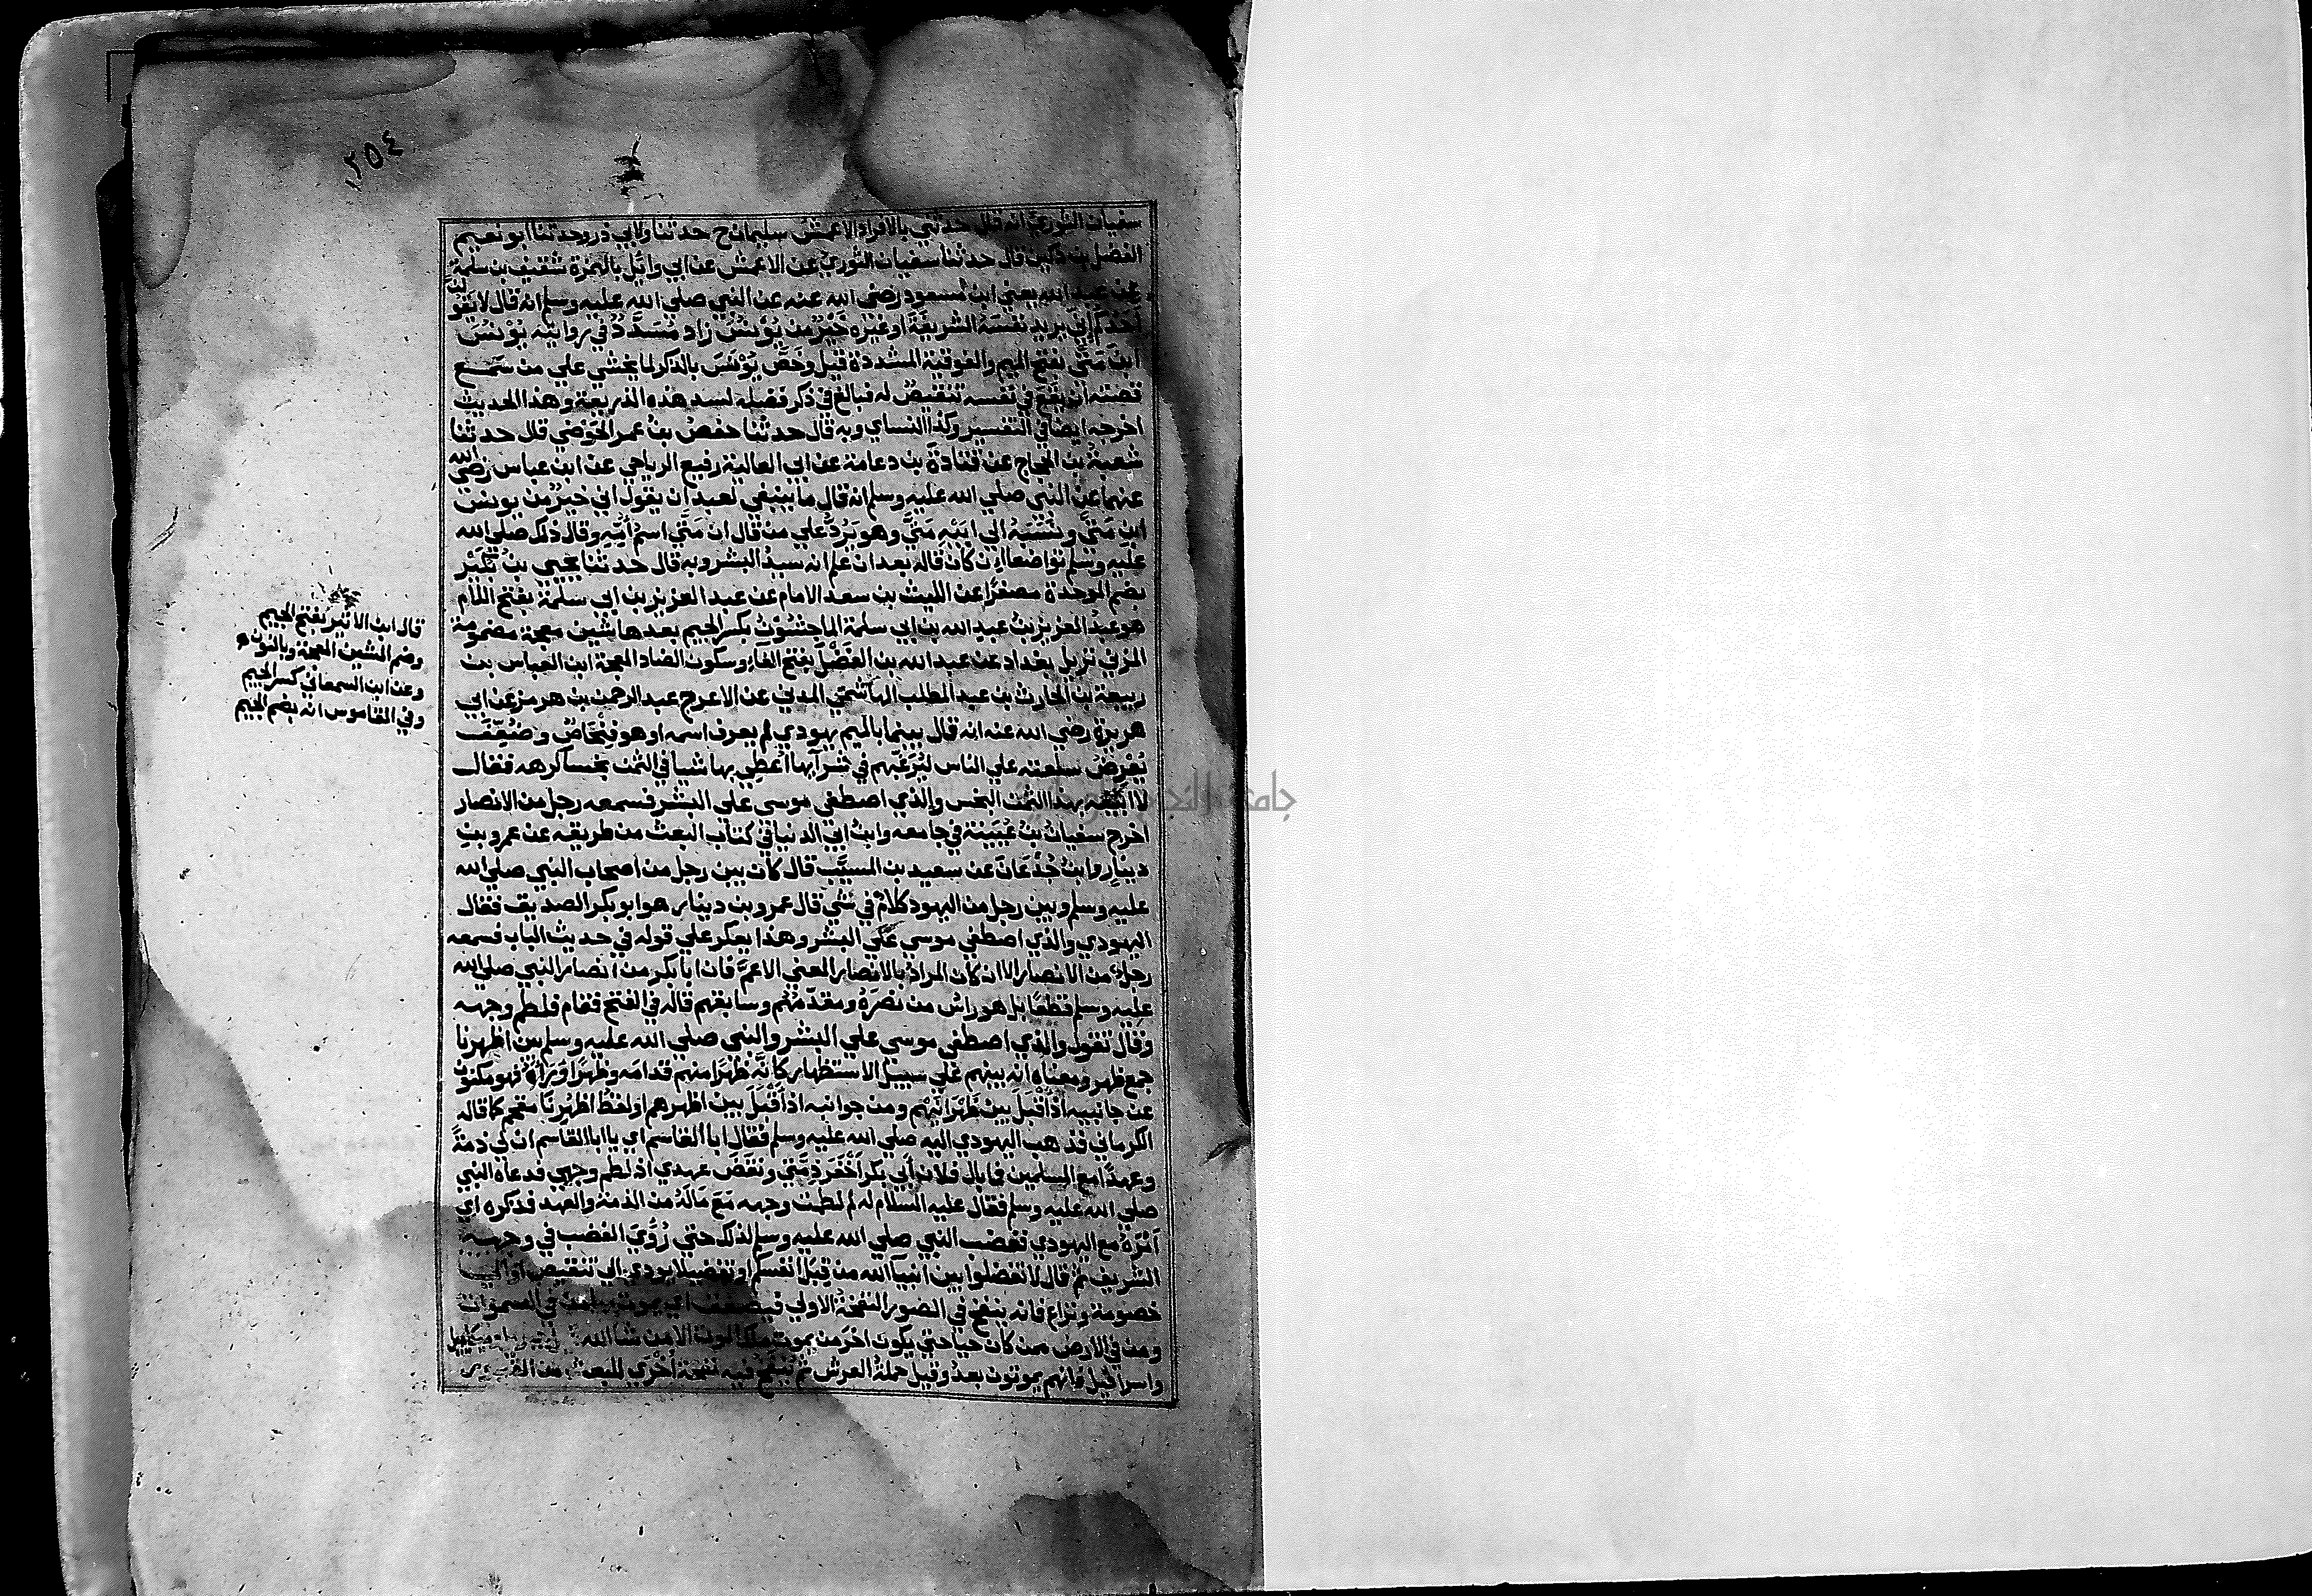 ٢٥٤
سفيان الثوري انه قال حدثني بالافراد الاعمش سليمان ح حدثنا ولابي ذر وحدثنا ابو نعيم
الفضل بن دكين قال حدثنا سفيان الثوري عن الاعمش عن ابي وائل بالهمزة شقيق بن سلمة
عن عبد الله يعني ابن مسعود رضي الله عنه عن النبي صلي الله عليه وسلم انه قال لا يقولن
احدكم اني يريد نفسه الشريفة او غيره خير من يونس زاد مسدد في روايته يونس
ابن متي بفتح الميم والفوقية المشددة قيل وخص يونس بالذكر لما يخشي علي من سمع
قصته ان يقع في نفسه تنقيص له فبالغ في ذكر فضله لسد هذه الذريعة وهذا الحديث
اخرجه ايضا في التفسير وكذا النساي وبه قال حدثنا حفص بن عمر الحوضي قال حدثنا
شعبة بن الحجاج عن قتادة بن دعامة عن ابي العالية رفيع الرياحي عن ابن عباس رضي الله
عنهما عن النبي صلي الله عليه وسلم انه قال ما ينبغي لعبد ان يقول اني خير من يونس
ابن متي ونسبه الي ابيه متي وهو يرد علي من قال ان متي اسم امه وقال ذلك صلي الله
عليه وسلم تواضعا ان كان قاله بعد ان علم انه سيد البشر وبه قال حدثنا يحيي بن بكير
بضم الموحدة مصغرا عن الليث بن سعد الامام عن عبد العزيز بن ابي سلمة بفتح اللام
هو عبد العزيز بن عبد الله بن ابي سلمة الماجشون بكسر الجيم بعدها شين معجمة مضمومة
المزني نزيل بغداد عن عبد الله بن الفضل بفتح الفاء وسكون الضاد المعجمة ابن العباس بن
ربيعة بن الحارث بن عبد المطلب الهاشمي المدني عن الاعرج عبد الرحمن بن هرمز عن ابي
هريرة رضي الله عنه انه قال بينما بالميم يهودي لم يعرف اسمه او هو فنحاص وضعف
يعرض سلعته علي الناس ليرغبهم في شرآيها اعطي بها شيا في الثمن بخسا كرهه فقال
لا ابيعه بهذا الثمن البخس والذي اصطفي موسي علي البشر فسمعه رجل من الانصار
اخرج سفيان بن عيينة في جامعه وابن ابي الدنيا في كتاب البعث من طريقه عن عمرو بن
دينار وابن جدعان عن سعيد بن المسيب قال كان بين رجل من اصحاب النبي صلي الله
عليه وسلم وبين رجل من اليهود كلام في شي قال عمرو بن دينار هو ابو بكر الصديق فقال
اليهودي والذي اصطفي موسي علي البشر وهذا يعكر علي قوله في حديث الباب فسمعه
رجل من الانصار الا ان كان المراد بالانصار المعني الاعم فان ابا بكر من انصار النبي صلي الله
عليه وسلم قطعا بل هو راس من نصره ومقدمهم وسابقهم قاله في الفتح فقام فلطم وجهه
وقال تقول والذي اصطفي موسي علي البشر والنبي صلي الله عليه وسلم بين اظهرنا
جمع ظهر ومعناه انه بينهم علي سبيل الاستظهار كانه ظهرا منهم قدامه وظهرا وراه فهو مكنون
عن جانبيه اذا قيل بين ظهرانيهم ومن جوانبه اذا قيل بين اظهرهم او لفظ اظهرنا مقحم كما قاله
الكرماني فذهب اليهودي اليه صلي الله عليه وسلم فقال ابا القاسم اي يا ابا القاسم ان لي ذمة
وعهدا مع المسلمين فما بال فلان ابي بكر اخفر ذمتي ونقض عهدي اذ لطم وجهي فدعاه النبي
صلي الله عليه وسلم فقال عليه السلام له لم لطمت وجهه مع ماله من الذمة والعهد فذكره اي
امره مع اليهودي فغضب النبي صلي الله عليه وسلم لذلك حتي رؤي الغضب في وجهه
الشريف ثم قال لا تفضلوا بين انبيآ الله من قبل انفسكم او تفضيلا يودي الي تنقيص او الي
خصومة ونزاع فانه ينفخ في الصور النفخة الاولي فيصعق اي يموت بها من في السموات
ومن في الارض ممن كان حيا حتي يكون اخر من يموت ملك الموت الا من شا الله وميكاييل
واسرافيل فانهم يموتون بعد وقيل حملة العرش ثم ينفخ فيه نفخة اخري للبعث من
قال ابن الاثير بفتح الجيم
وضم الشين المعجمة وبالنون
وعن ابن السمعاني كسر الجيم
وفي القاموس انه بضم الجيم